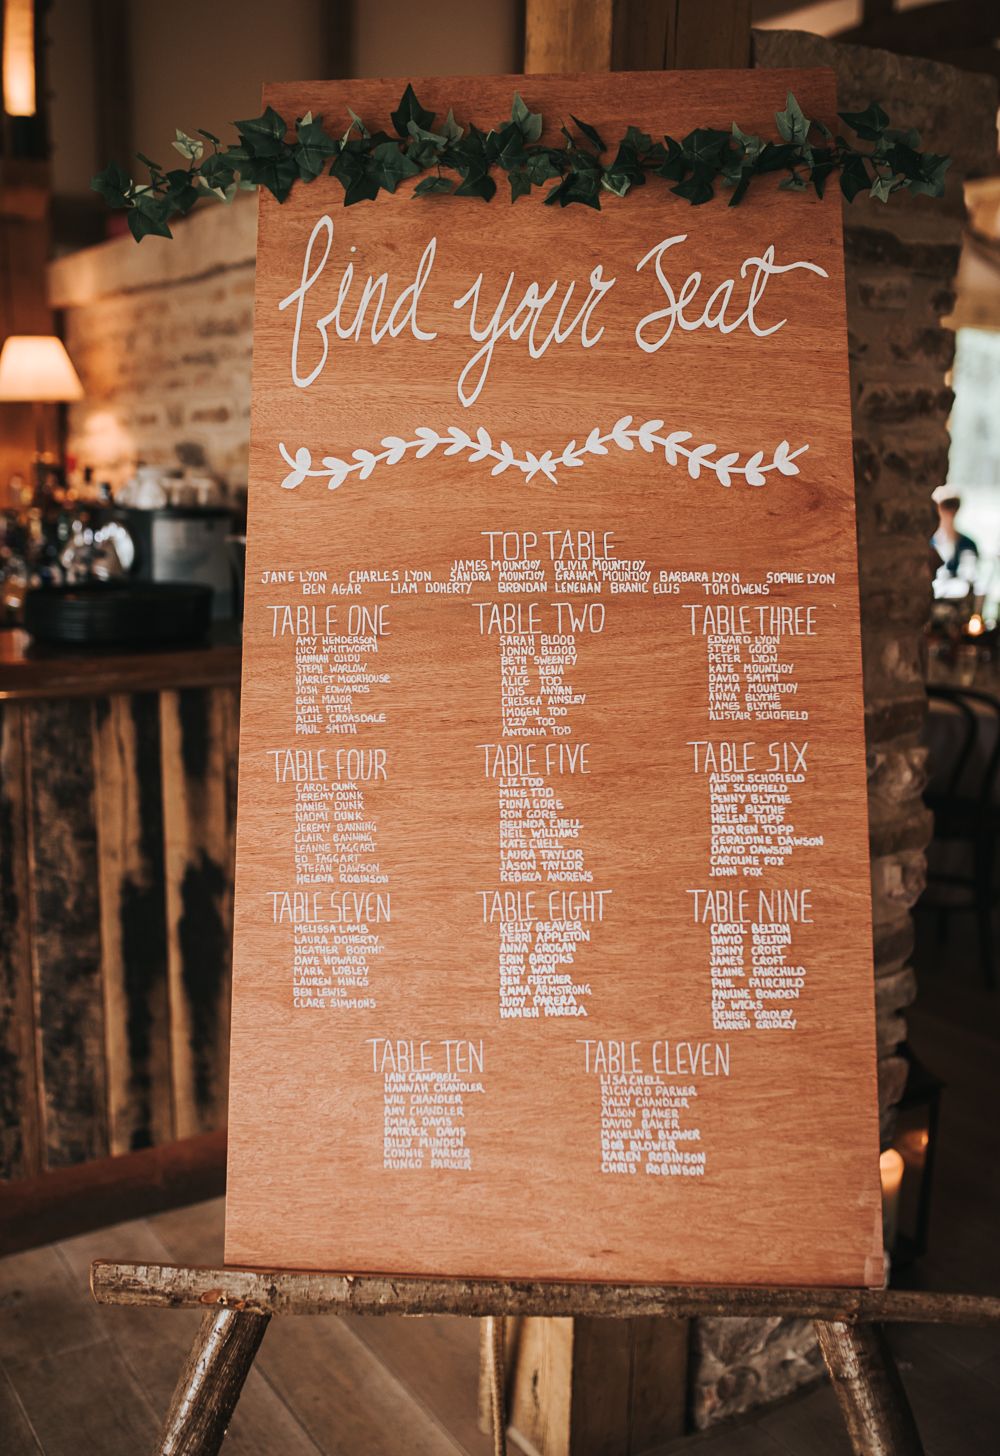 find your Seat
TOP TABLE
JAMES MOUNTJOY OLIVIA MOUNTJOY
JANE LYON CHARLES LYON SANDRA MOUNTJOY GRAHAM MOUNTJOY BARBARA LYON SOPHIE LYON
BEN AGAR LIAM DOHERTY BRENDAN LENEHAN BRANIC ELLIS TOM OWENS
TABLE ONE
AMY HENDERSON
LUCY WHITWORTH
HANNAH OJIDU
STEPH WARLOW
HARRIET MOORHOUSE
JOSH EDWARDS
BEN MAJOR
LEAH FITCH
ALLIE CROASDALE
PAUL SMITH
TABLE TWO
SARAH BLOOD
JONNO BLOOD
BETH SWEENEY
KYLE KENA
ALICE TOD
LOIS ANYAN
CHELSEA AINSLEY
IMOGEN TOD
IZZY TOD
ANTONIA TOD
TABLE THREE
EDWARD LYON
STEPH GOOD
PETER LYON
KATE MOUNTJOY
DAVID SMITH
EMMA MOUNTJOY
ANNA BLYTHE
JAMES BLYTHE
ALISTAIR SCHOFIELD
TABLE FOUR
CAROL DUNK
JEREMY DUNK
DANIEL DUNK
NAOMI DUNK
JEREMY BANNING
CLAIR BANNING
LEANNE TAGGART
ED TAGGART
STEFAN DAWSON
HELENA ROBINSON
TABLE FIVE
LIZ TOD
MIKE TOD
FIONA GORE
RON GORE
BELINDA CHELL
NEIL WILLIAMS
KATE CHELL
LAURA TAYLOR
JASON TAYLOR
REBECCA ANDREWS
TABLE SIX
ALISON SCHOFIELD
IAN SCHOFIELD
PENNY BLYTHE
DAVE BLYTHE
HELEN TOPP
DARREN TOPP
GERALDINE DAWSON
DAVID DAWSON
CAROLINE FOX
JOHN FOX
TABLE SEVEN
MELISSA LAMB
LAURA DOHERTY
HEATHER BOOTH
DAVE HOWARD
MARK LOBLEY
LAUREN KINGS
BEN LEWIS
CLARE SIMMONS
TABLE EIGHT
KELLY BEAVER
TERRI APPLETON
ANNA GROGAN
ERIN BROOKS
EVEY WAN
BEN FLETCHER
EMMA ARMSTRONG
JUDY PARERA
HAMISH PARERA
TABLE NINE
CAROL BELTON
DAVID BELTON
JENNY CROFT
JAMES CROFT
ELAINE FAIRCHILD
PHIL FAIRCHILD
PAULINE BOWDEN
ED WICKS
DENISE GRIDLEY
DARREN GRIDLEY
TABLE TEN
IAIN CAMPBELL
HANNAH CHANDLER
WILL CHANDLER
AMY CHANDLER
EMMA DAVIS
PATRICK DAVIS
BILLY MUNDEN
CONNIE PARKER
MUNGO PARKER
TABLE ELEVEN
LISA CHELL
RICHARD PARKER
SALLY CHANDLER
ALISON BAKER
DAVID BAKER
MADELINE BLOWER
BOB BLOWER
KAREN ROBINSON
CHRIS ROBINSON